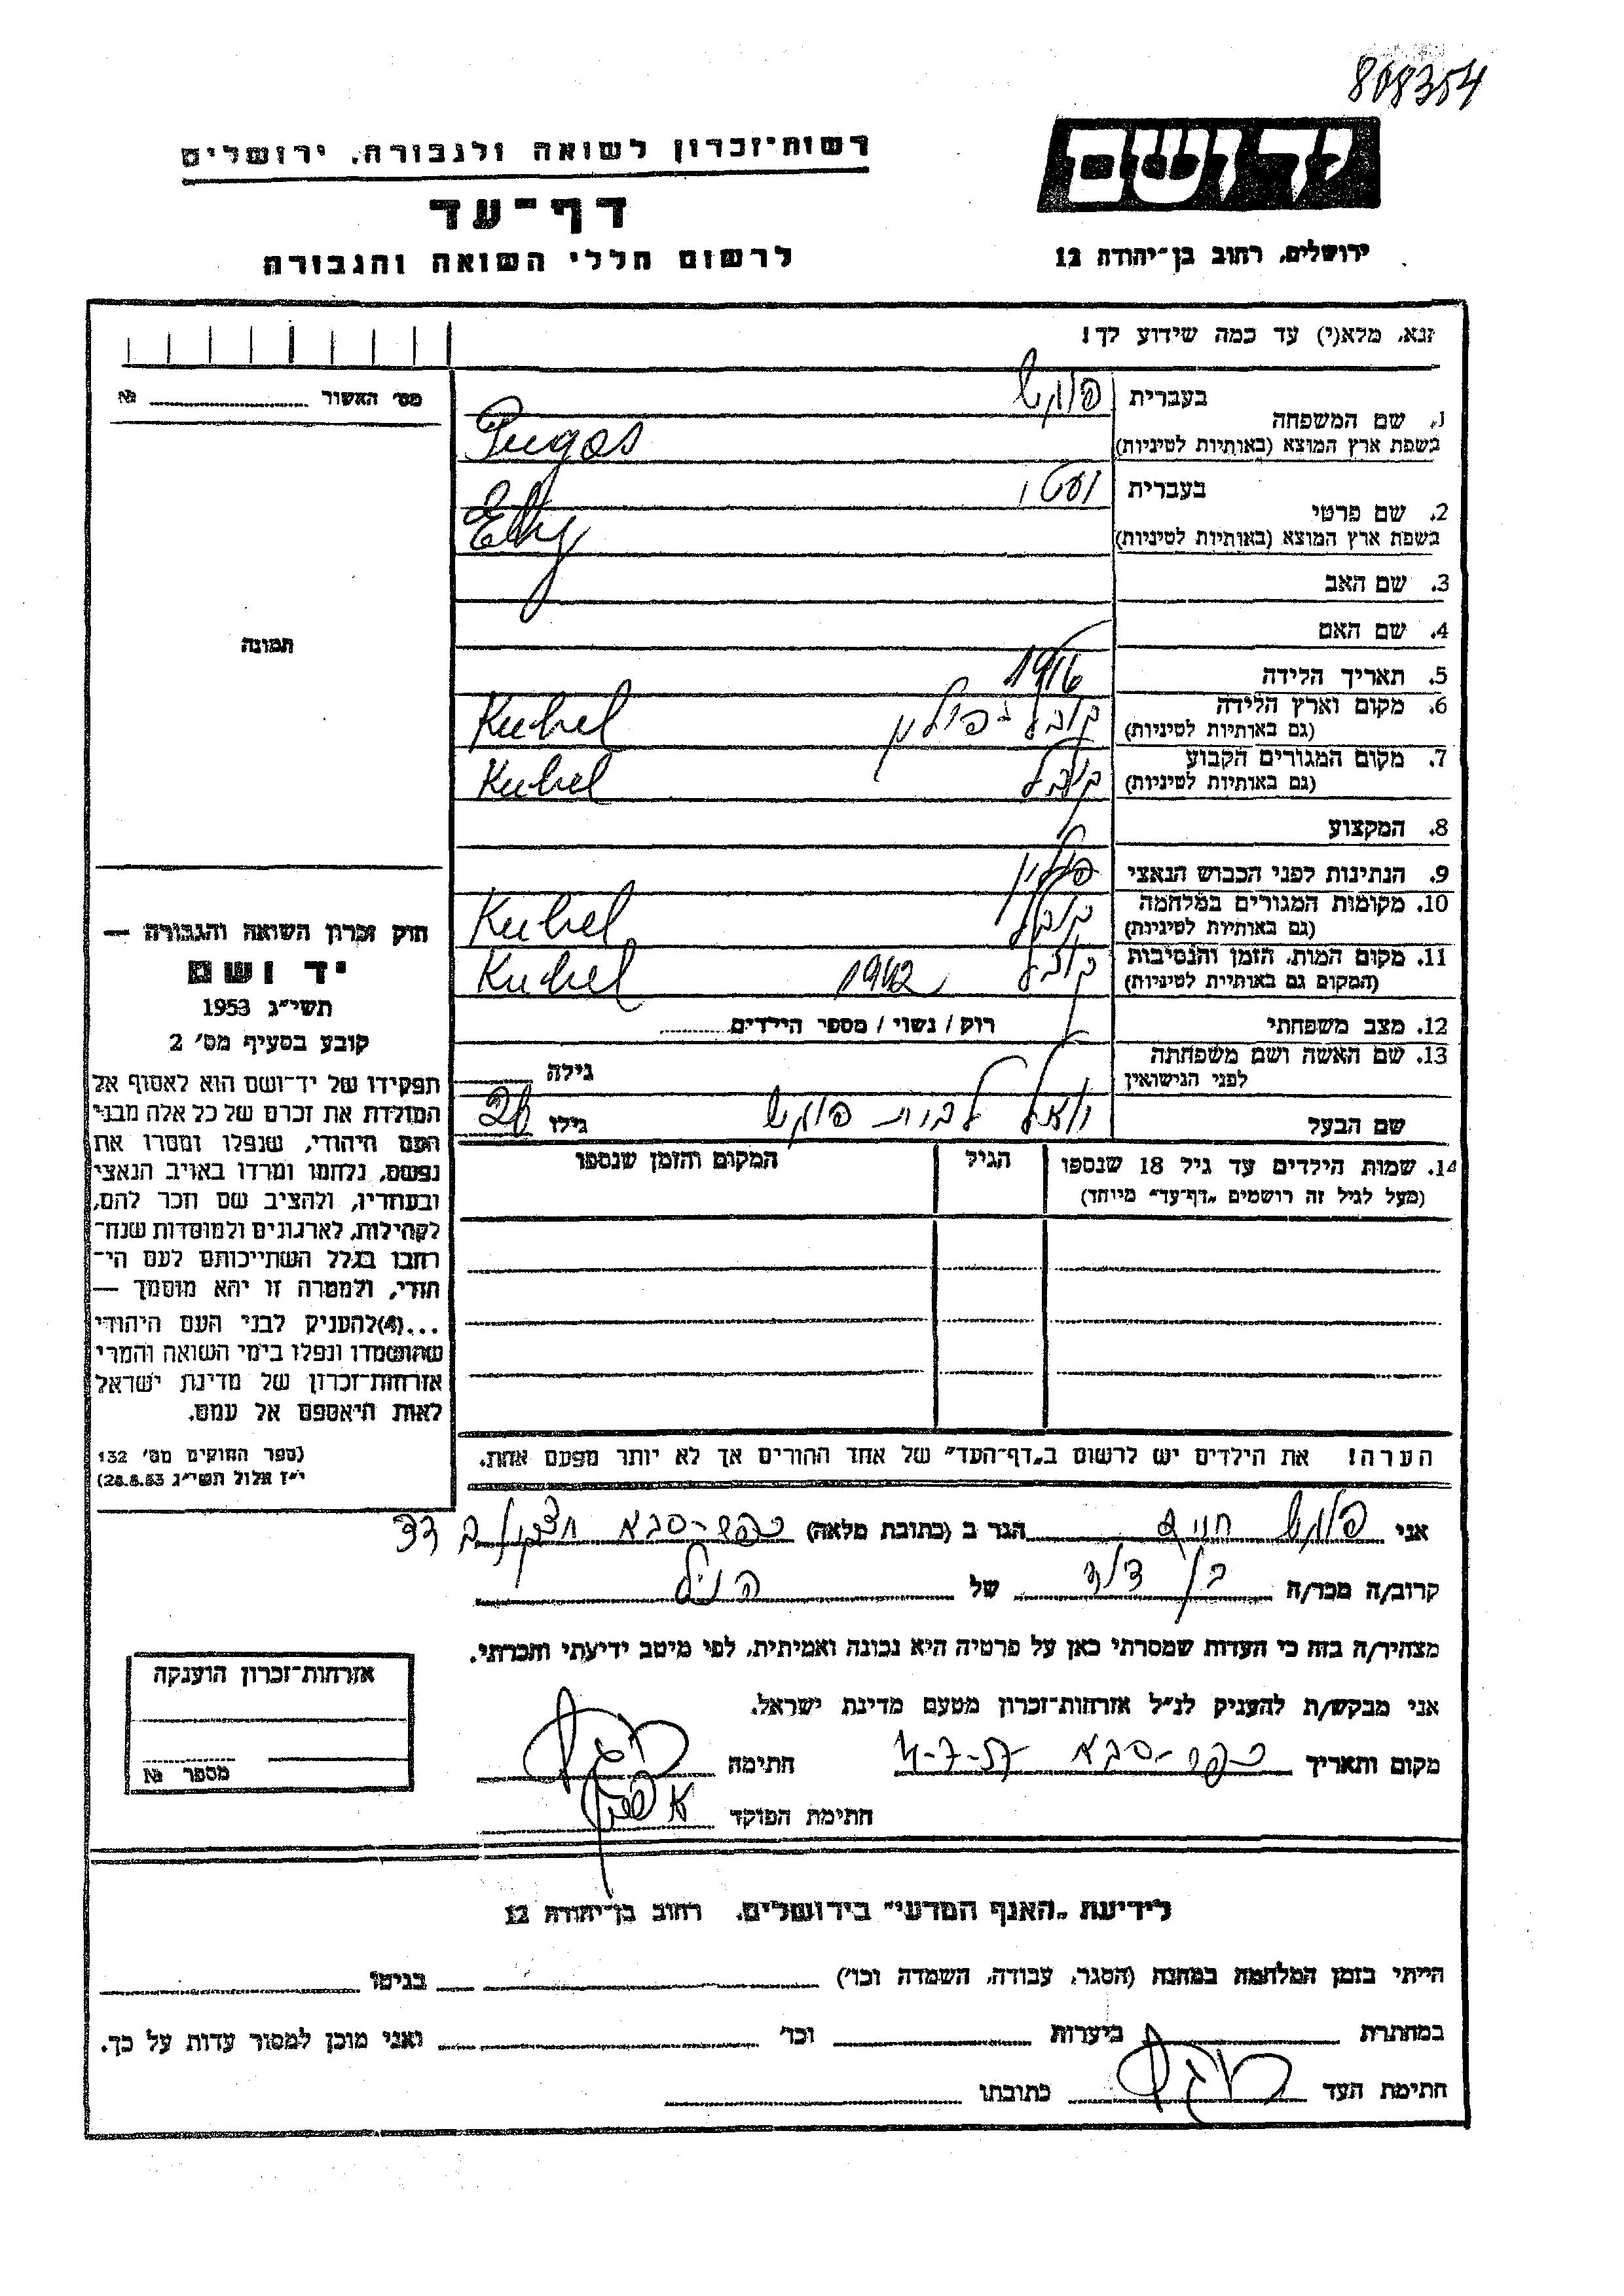 808354
יד ושם
ירושלים, רחוב בן־יהודה 12
רשות־זכרון לשואה ולגבורה, ירושלים
דף־עד
לרשום חללי השואה והגבורה
נא, מלא(י) עד כמה שידוע לך!
מס׳ האשור № 
1. שם המשפחה
בעברית
בשפת ארץ המוצא (באותיות לטיניות) Pugas
2. שם פרטי
בעברית
בשפת ארץ המוצא (באותיות לטיניות)
3. שם האב
4. שם האם
5. תאריך הלידה 1916
6. מקום וארץ הלידה קובל-פולין Kubel
(גם באותיות לטיניות)
7. מקום המגורים הקבוע קובל Kubel
(גם באותיות לטיניות)
8. המקצוע
9. הנתינות לפני הכבוש הנאצי פולין
10. מקומות המגורים במלחמה קובל Kubel
(גם באותיות לטיניות)
11. מקום המות, הזמן והנסיבות קובל 1942 Kubel
(המקום גם באותיות לטיניות)
12. מצב משפחתי רוק / נשוי / מספר הילדים
13. שם האשה ושם משפחתה גילה
לפני הנישואין
שם הבעל גילו
14. שמות הילדים עד גיל 18 שנספו הגיל המקום והזמן שנספו
(מעל לגיל זה רושמים „דף־עד״ מיוחד)
הערה! את הילדים יש לרשום ב„דף־העד״ של אחד ההורים אך לא יותר מפעם אחת.
תמונה
חוק זכרון השואה והגבורה —
יד ושם
תשי״ג 1953
קובע בסעיף מס׳ 2
תפקידו של יד־ושם הוא לאסוף אל
המולדת את זכרם של כל אלה מבני
העם היהודי, שנפלו ומסרו את
נפשם, נלחמו ומרדו באויב הנאצי
ובעוזריו, ולהציב שם וזכר להם,
לקהילות, לארגונים ולמוסדות שנח־
רבו בגלל השתייכותם לעם הי־
הודי, ולמטרה זו יהא מוסמך —
...(4)להעניק לבני העם היהודי
שהושמדו ונפלו בימי השואה והמרי
אזרחות־זכרון של מדינת ישראל
לאות היאספם אל עמם.
(ספר החוקים מס׳ 132
י״ז אלול תשי״ג 28.8.53)
אני הגר ב (כתובת מלאה) כפר-סבא
קרוב/ה מכר/ה בן דוד של הנ״ל
מצהיר/ה בזה כי העדות שמסרתי כאן על פרטיה היא נכונה ואמיתית, לפי מיטב ידיעתי והכרתי.
אני מבקש/ת להעניק לנ״ל אזרחות־זכרון מטעם מדינת ישראל.
מקום ותאריך כפר-סבא 4-7-57 חתימה
חתימת הפוקד
אזרחות־זכרון הוענקה
מספר №
לידיעת „האגף המדעי״ בירושלים, רחוב בן־יהודה 12
הייתי בזמן המלחמה במחנה (הסגר, עבודה, השמדה וכו׳) בגיטו
במחתרת ביערות וכו׳ ואני מוכן למסור עדות על כך.
חתימת העד כתובתו